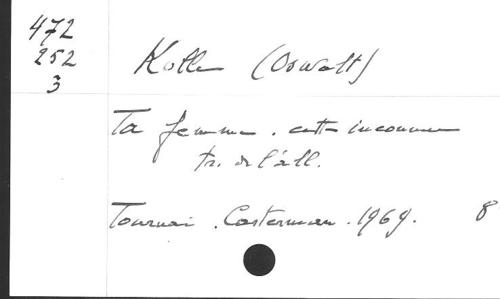 472
252
3
Kolle (Oswalt)
Ta femme. cette inconnue
tr. de l'all.
Tournai. Casterman. 1969. 8